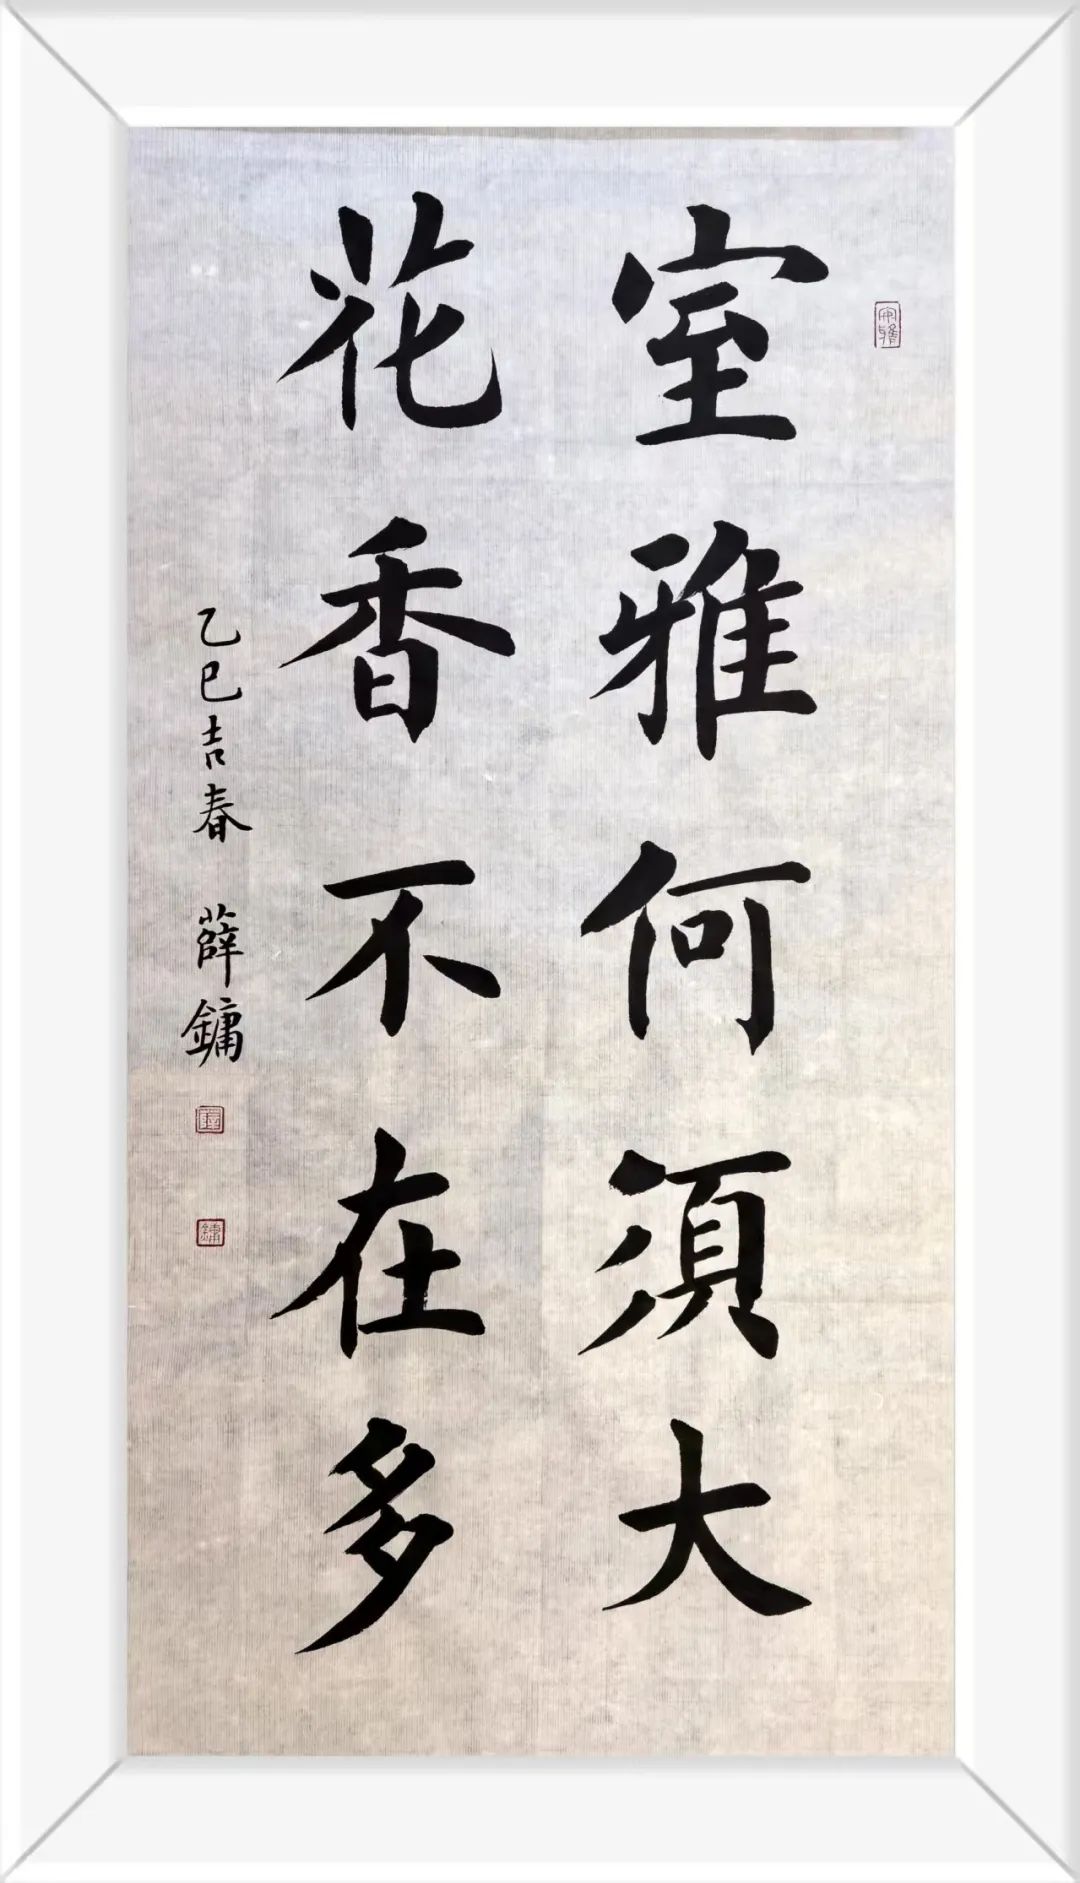 室雅何須大
花香不在多
乙巳吉春 薛鏞